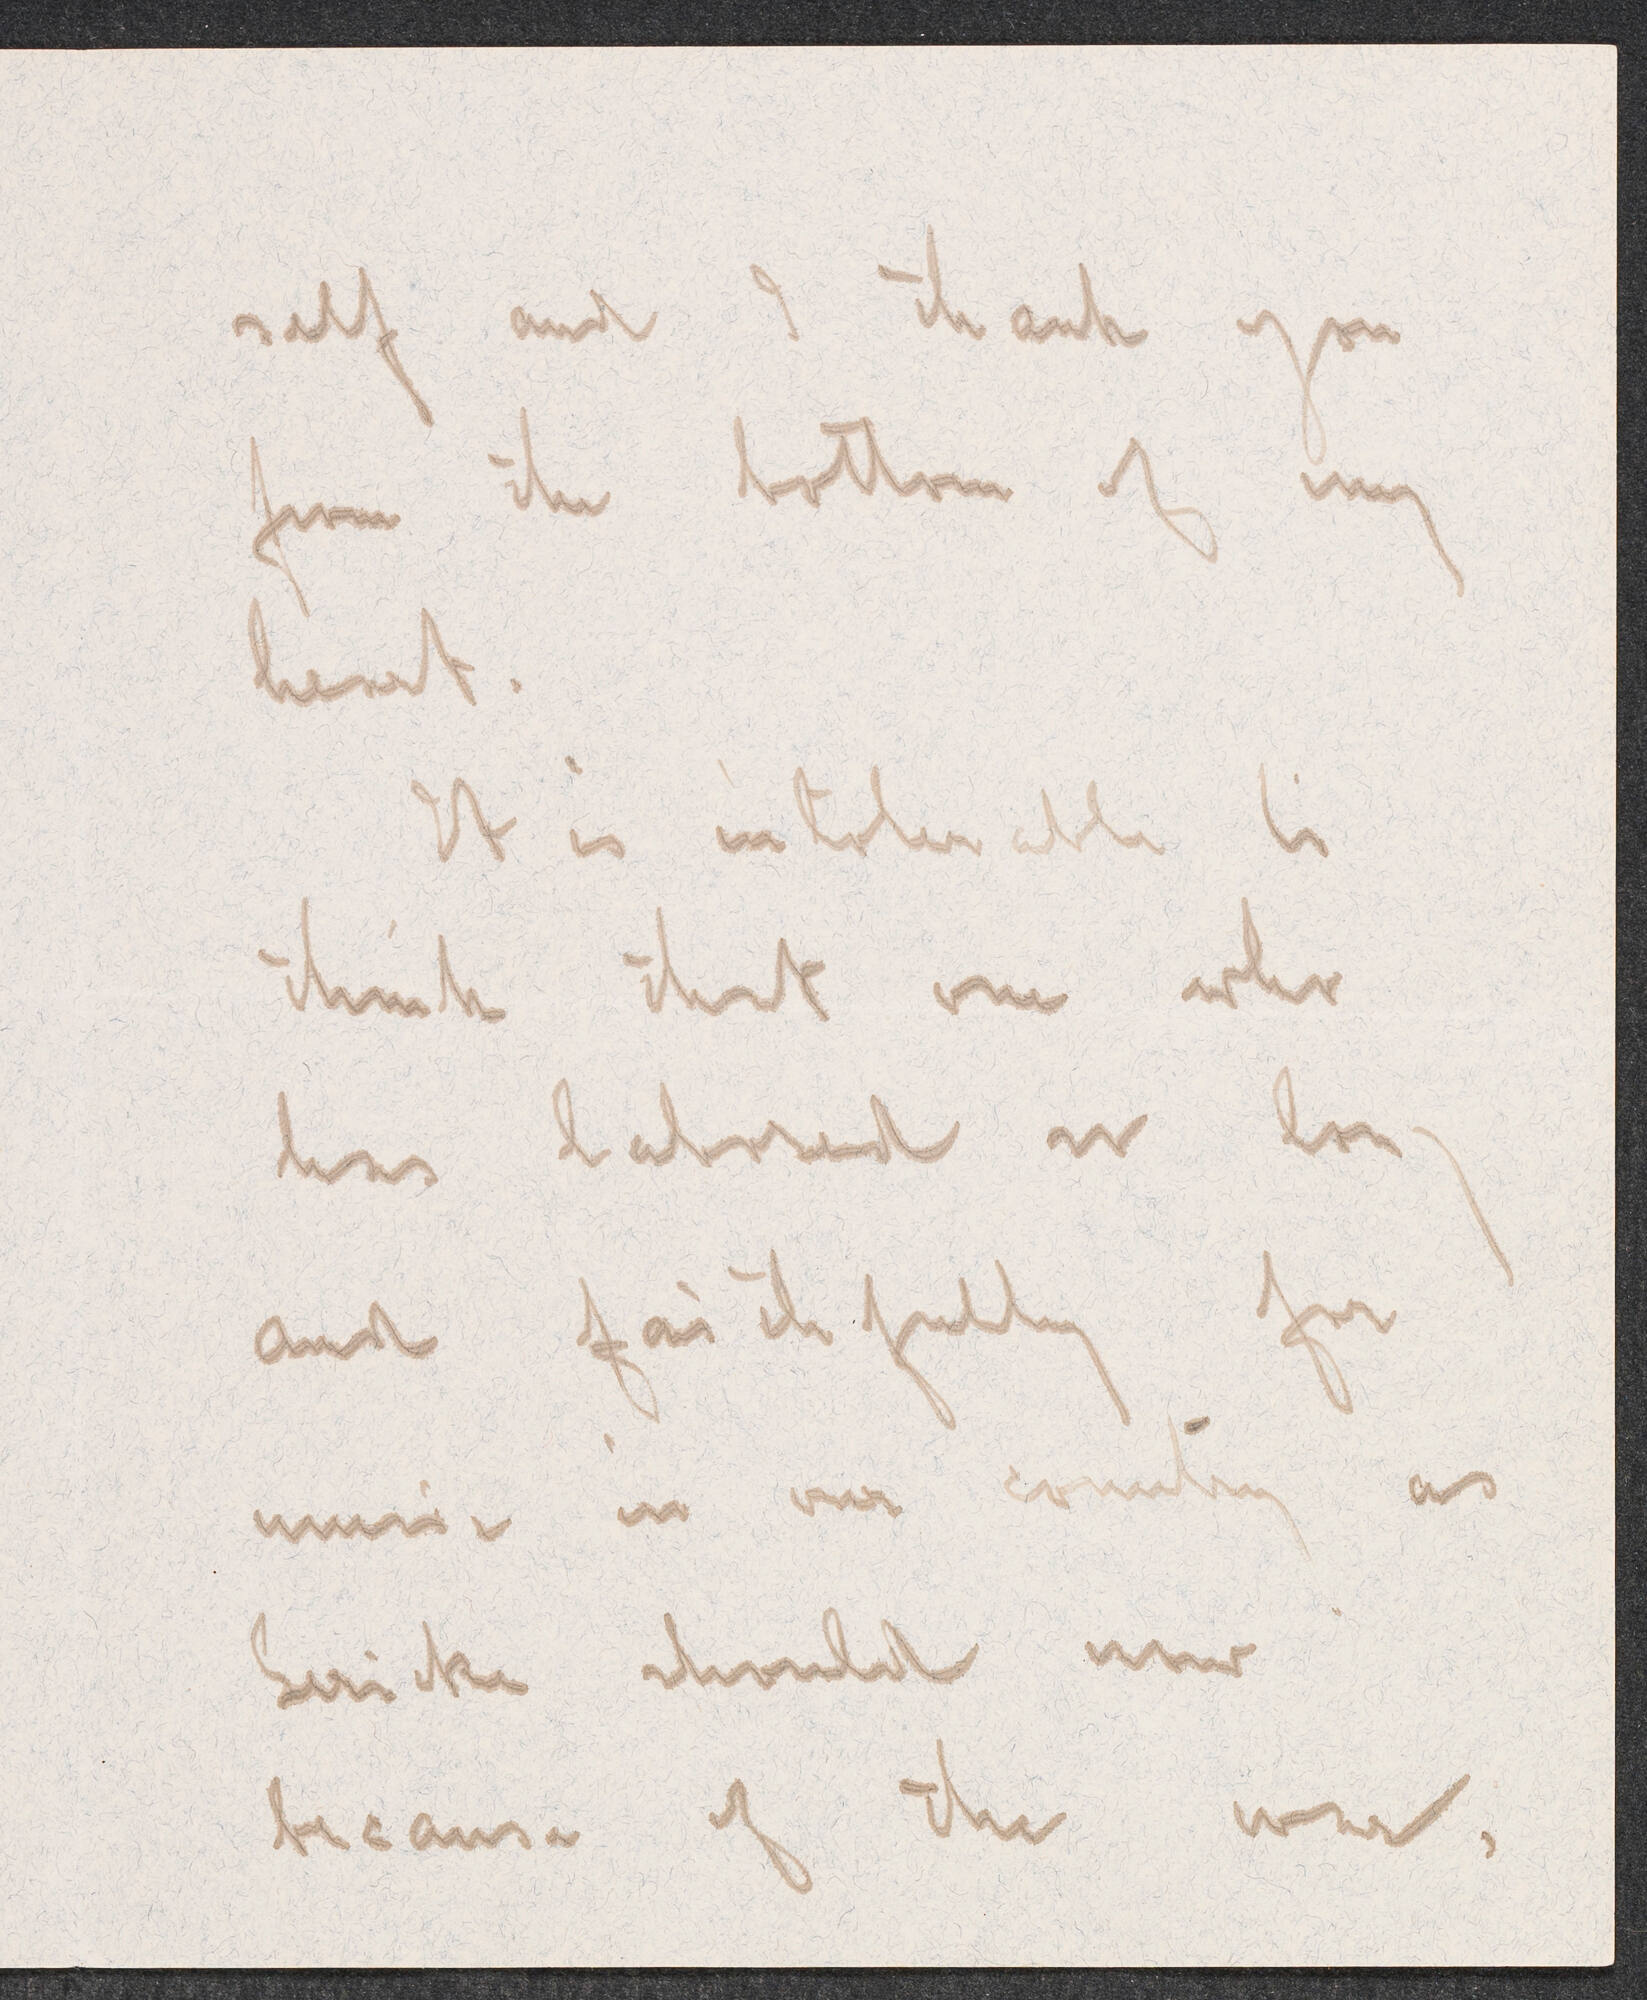 self and I thank you
from the bottom of my
heart.
It is intolerable to
think that one who
has labored so long
and faithfully for
music in our country as
Gericke should now
because of the war,